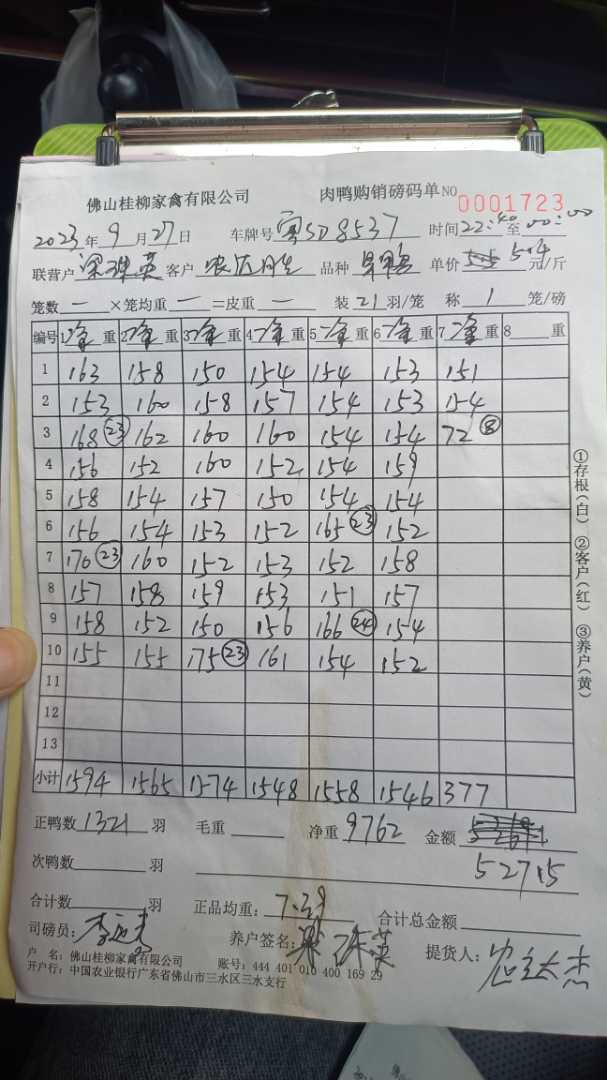 佛山桂柳家禽有限公司 肉鸭购销磅码单 NO 0001723
2023年9月27日 车牌号 粤SD8537 时间22:40至00:00
联营户 客户 品种 单价 5.4 元/斤
笼数 一 ×笼均重 一 =皮重 一 装21羽/笼 称1笼/磅
编号 1净重 2净重 3净重 4净重 5净重 6净重 7净重 8 重
1 163 158 150 154 154 153 151
2 153 160 158 157 154 153 154
3 168 (23) 162 160 160 154 154 72 (8)
4 156 152 160 152 154 159
5 158 154 157 150 154 154
6 156 154 153 152 165 (23) 152
7 170 (23) 160 152 153 152 158
8 157 158 159 153 151 157
9 158 152 150 156 166 (24) 154
10 155 155 175 (23) 161 154 152
11
12
13
小计 1594 1565 1574 1548 1558 1546 377
正鸭数 1321 羽 毛重 净重 9762 金额
52715
次鸭数 羽
合计数 羽 正品均重: 7.39 合计总金额
司磅员: 养户签名: 提货人:
户 名: 佛山桂柳家禽有限公司 账号: 444 401 010 400 169 29
开户行: 中国农业银行广东省佛山市三水区三水支行
①存根(白) ②客户(红) ③养户(黄)